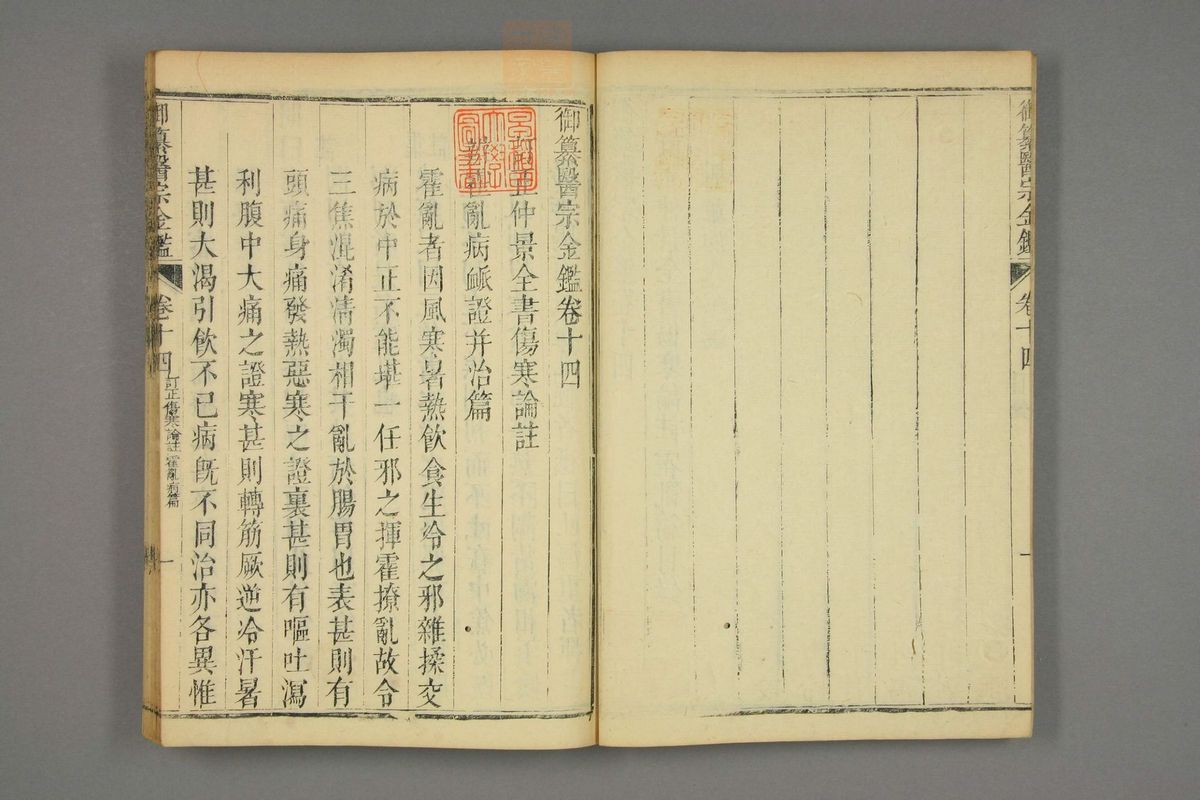 御纂醫宗金鑑 卷十四 一
御纂醫宗金鑑卷十四
正仲景全書傷寒論註
辨霍亂病衇證并治篇
霍亂者因風寒暑熱飲食生冷之邪雜揉交
病於中正不能堪一任邪之揮霍撩亂故令
三焦混淆清濁相干亂於腸胃也表甚則有
頭痛身痛發熱惡寒之證裏甚則有嘔吐瀉
利腹中大痛之證寒甚則轉筋厥逆冷汗暑
甚則大渴引飲不已病既不同治亦各異惟
御纂醫宗金鑑 卷十四 訂正傷寒論註 霍亂病篇 一